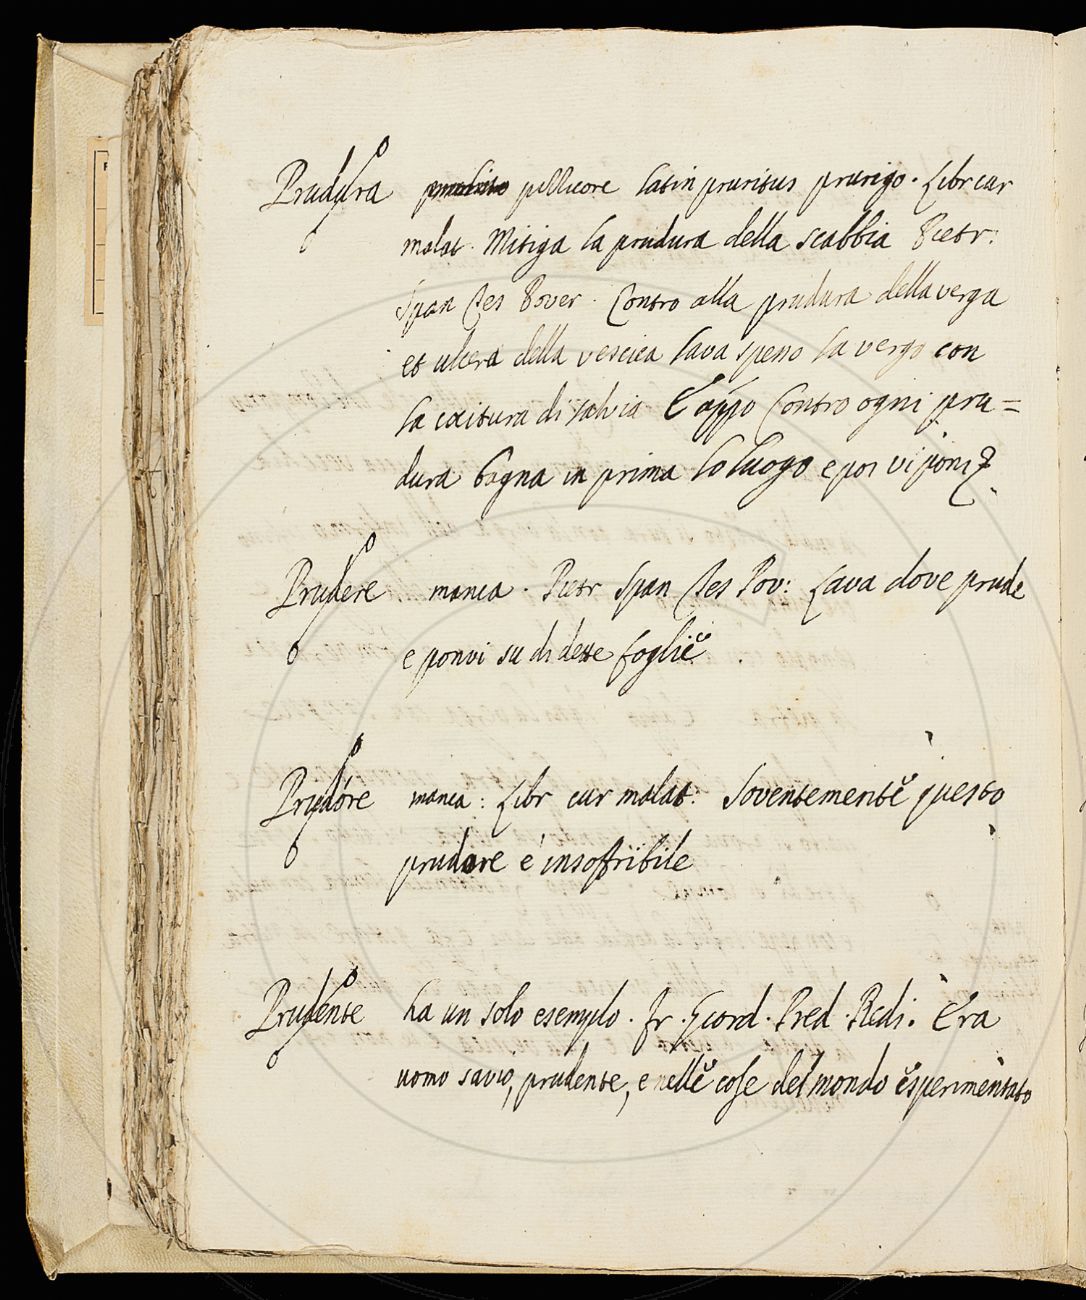 Prudura pizzicore latin pruritus prurigo. Libr cur
malat. Mitiga la prudura della scabbia Pietr:
Span Tes Pover. Contro alla prudura della verga
et ulcera della vescica lava spesso la verga con
la coitura di salvia E appo Contro ogni pru=
dura bagna in prima lo luogo e poi vi poni
Prudere manca. Pietr Span Tes Pov: Lava dove prude
e ponvi su di dette foglie
Prudore manca: Libr cur malat: Soventemente questo
prudore é insoffribile
Prudente ha un solo esempio. fr. Giord. Pred. Redi. Era
uomo savio, prudente, e nelle cose del mondo esperimentato